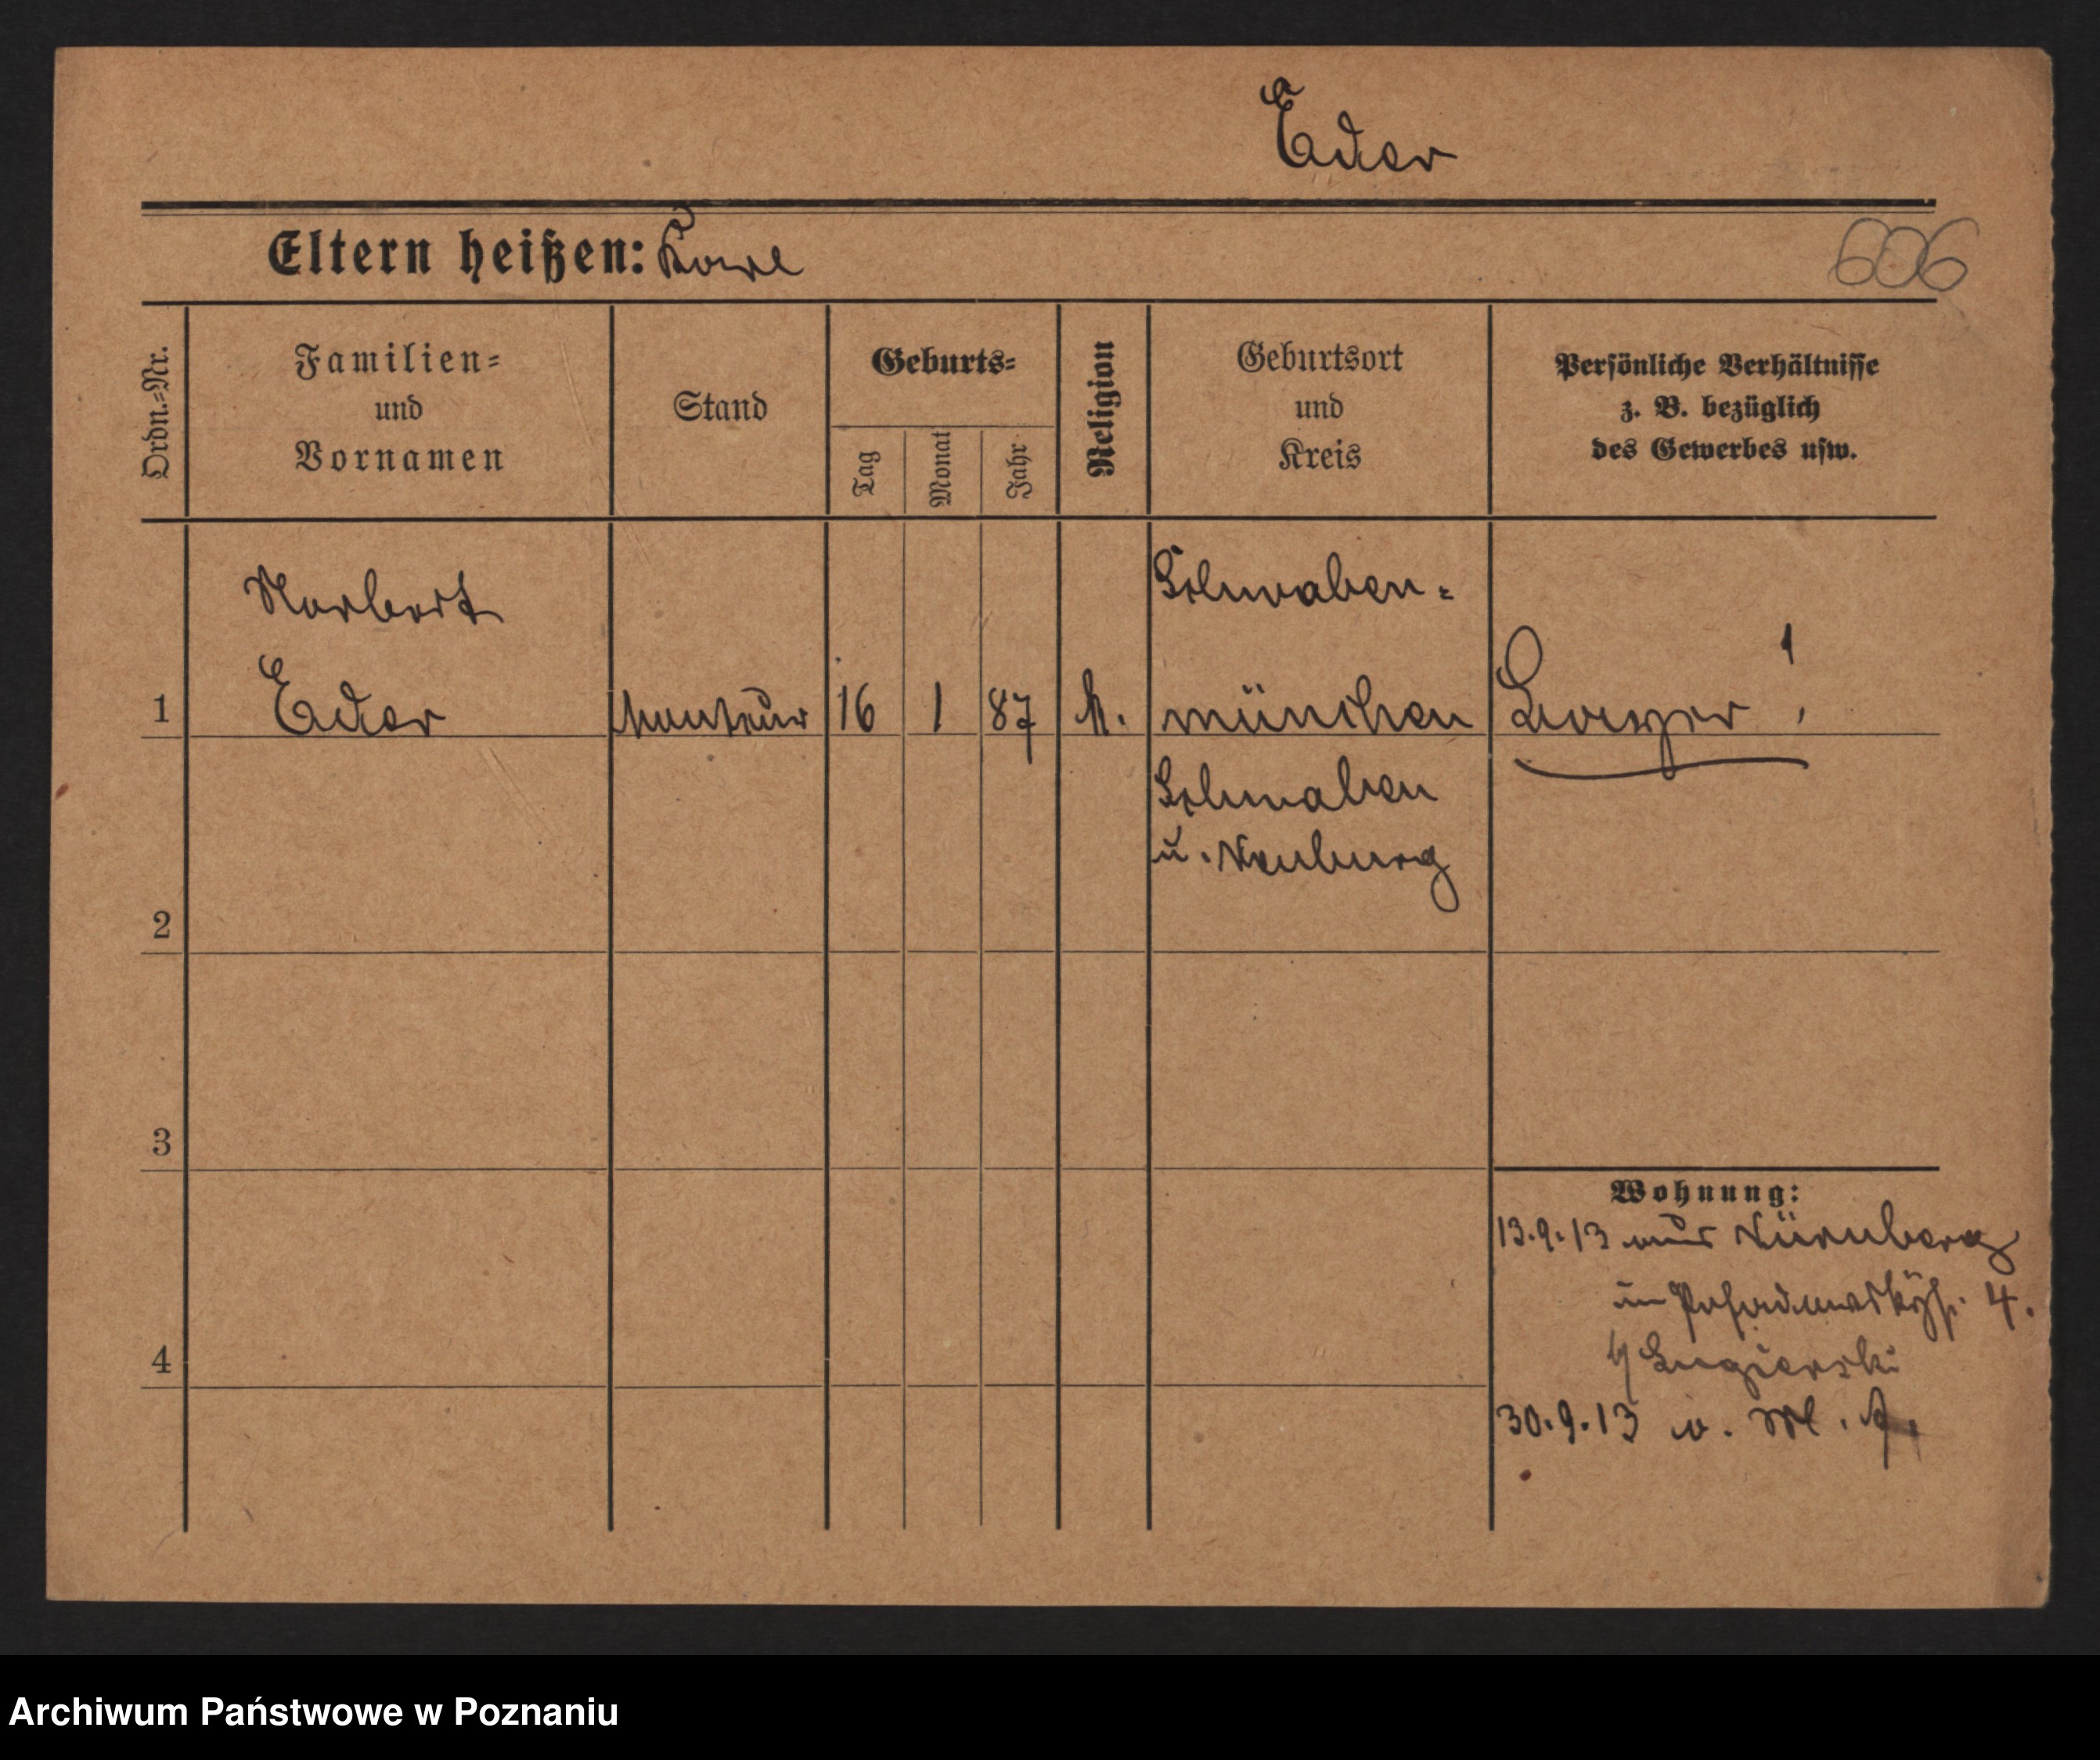 Eder
Eltern heißen: Karl
606
Ordn.-Nr.
Familien-
und
Vornamen
Stand
Geburts-
Tag
Monat
Jahr
Religion
Geburtsort
und
Kreis
Persönliche Verhältnisse
z. B. bezüglich
des Gewerbes usw.
Norbert
Schwaben-
1 Eder Monteur 16 1 87 k. münchen
Schwaben
u. Neuburg
2
3
Wohnung:
13.9.13 aus Nürnberg
4.
4
30.9.13 v.
Archiwum Państwowe w Poznaniu